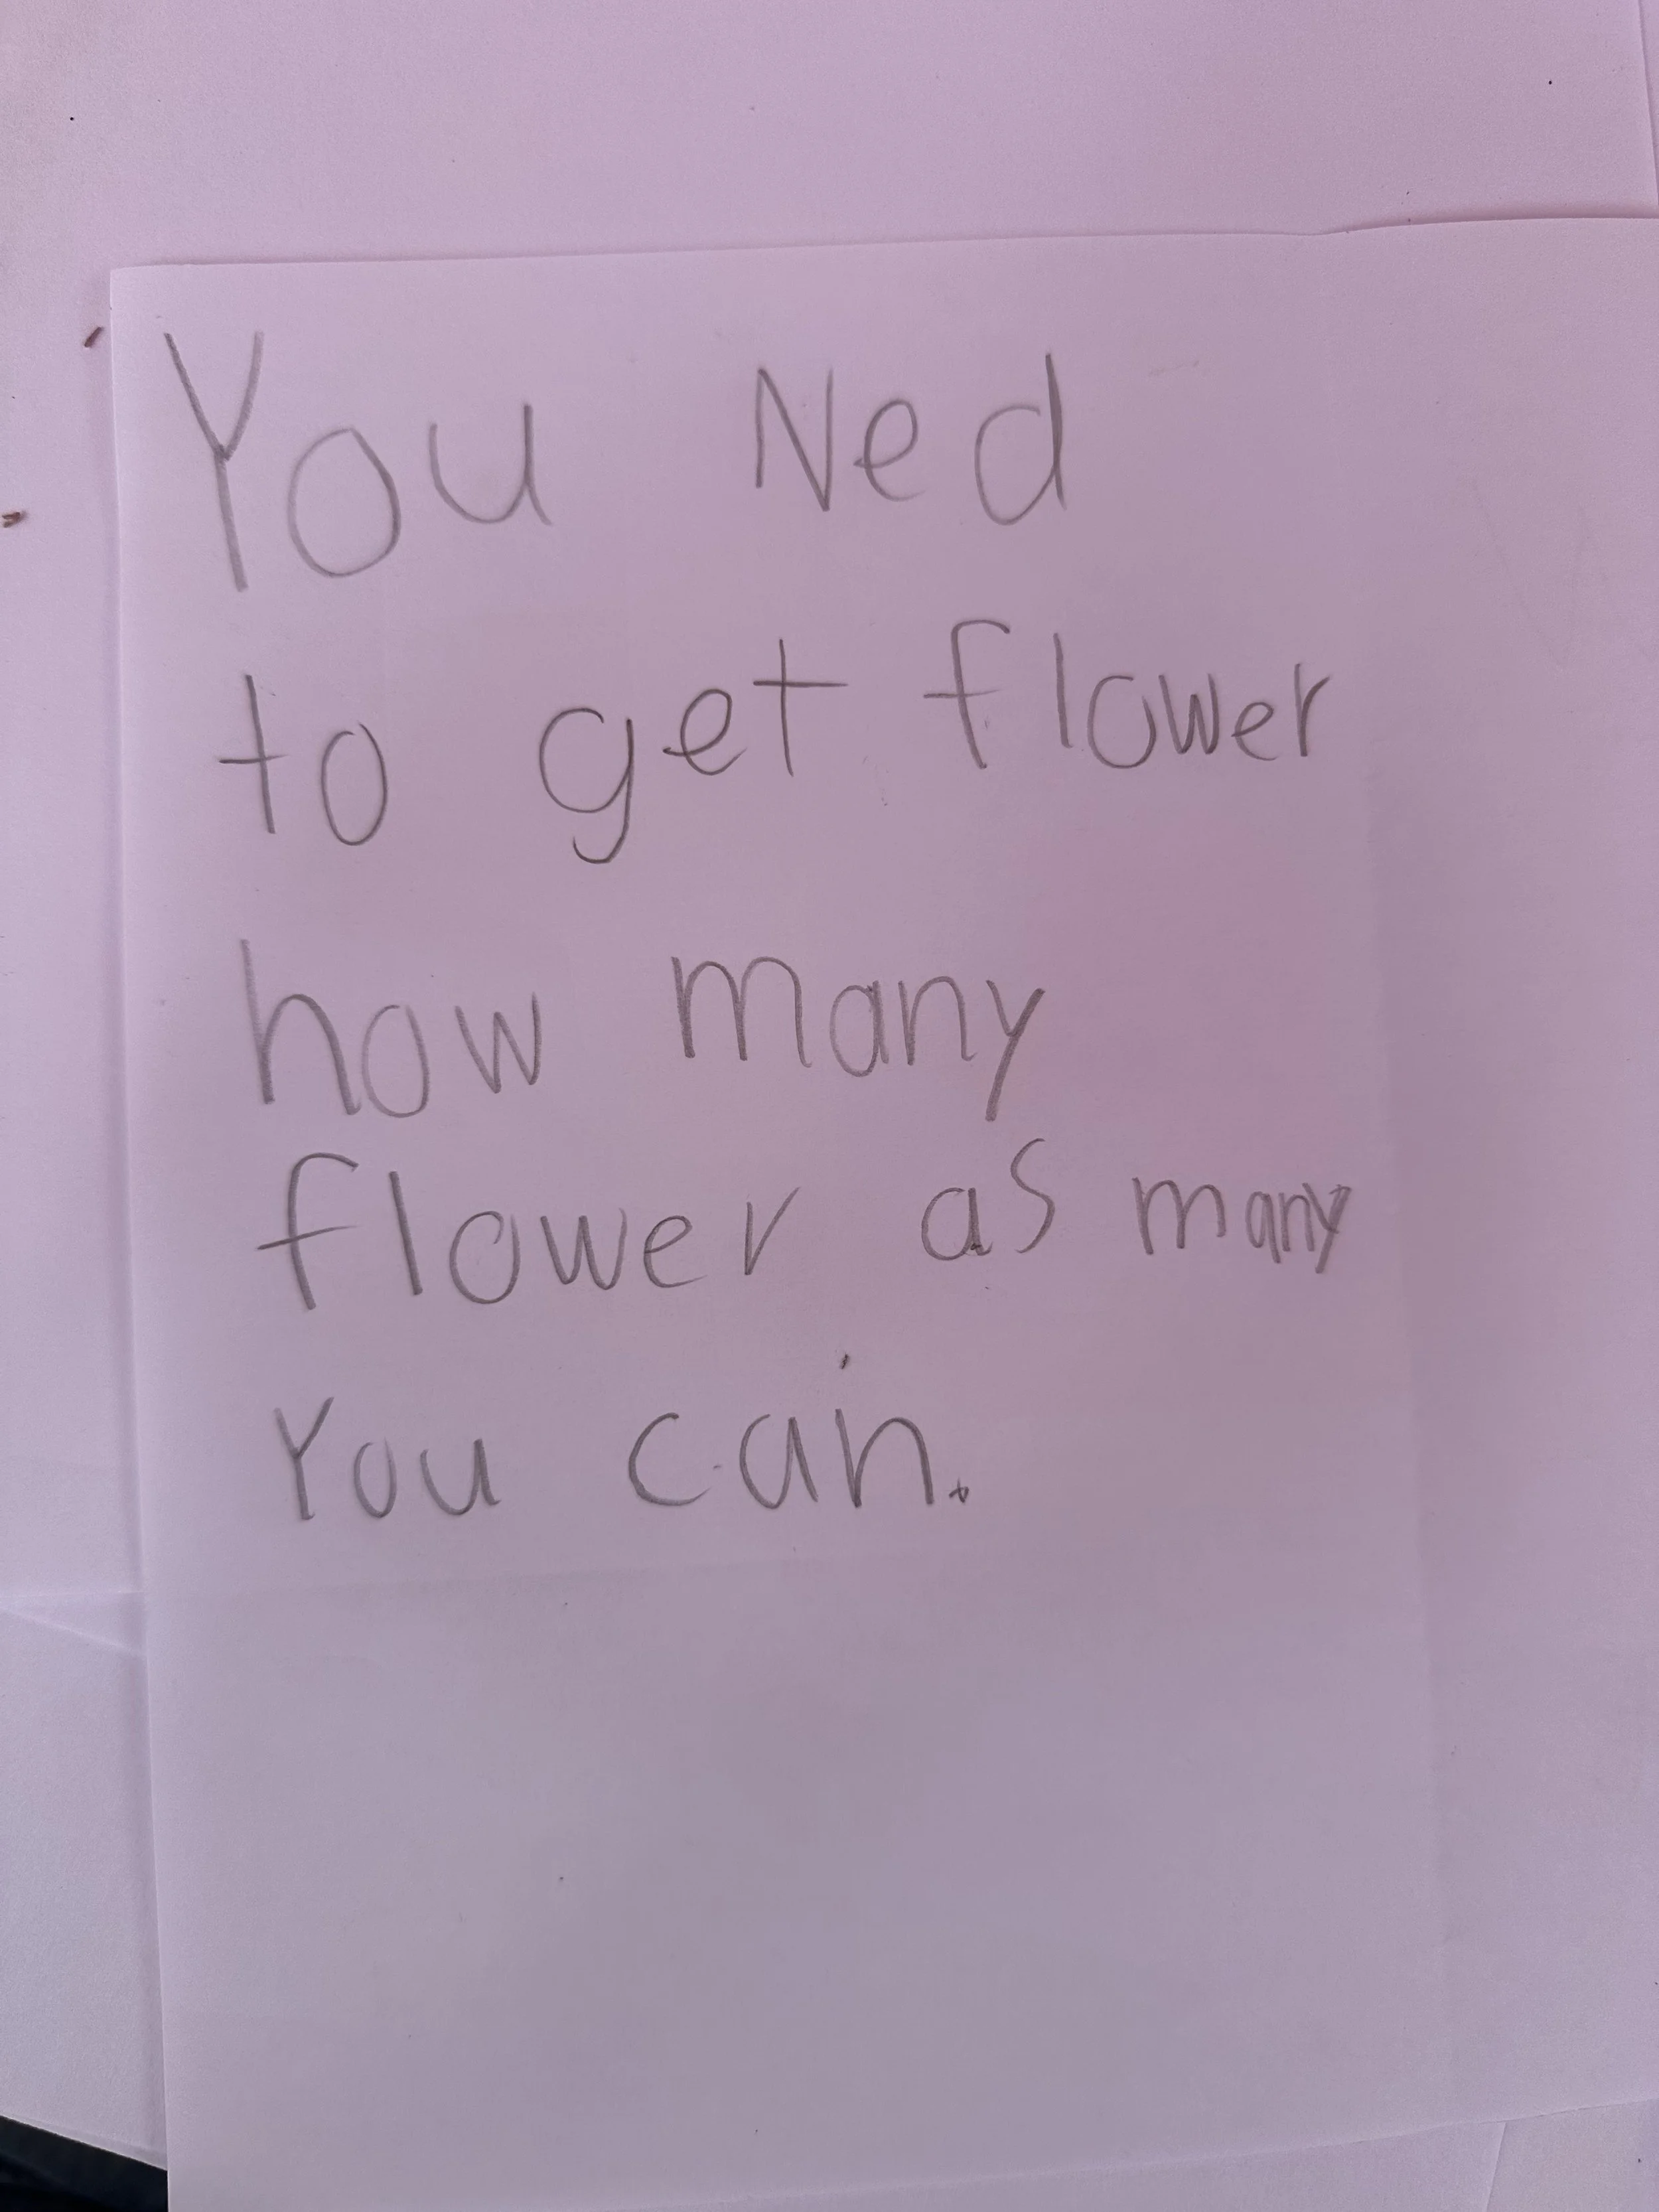 You Ned
to get flower
how many
flower as many
You can.